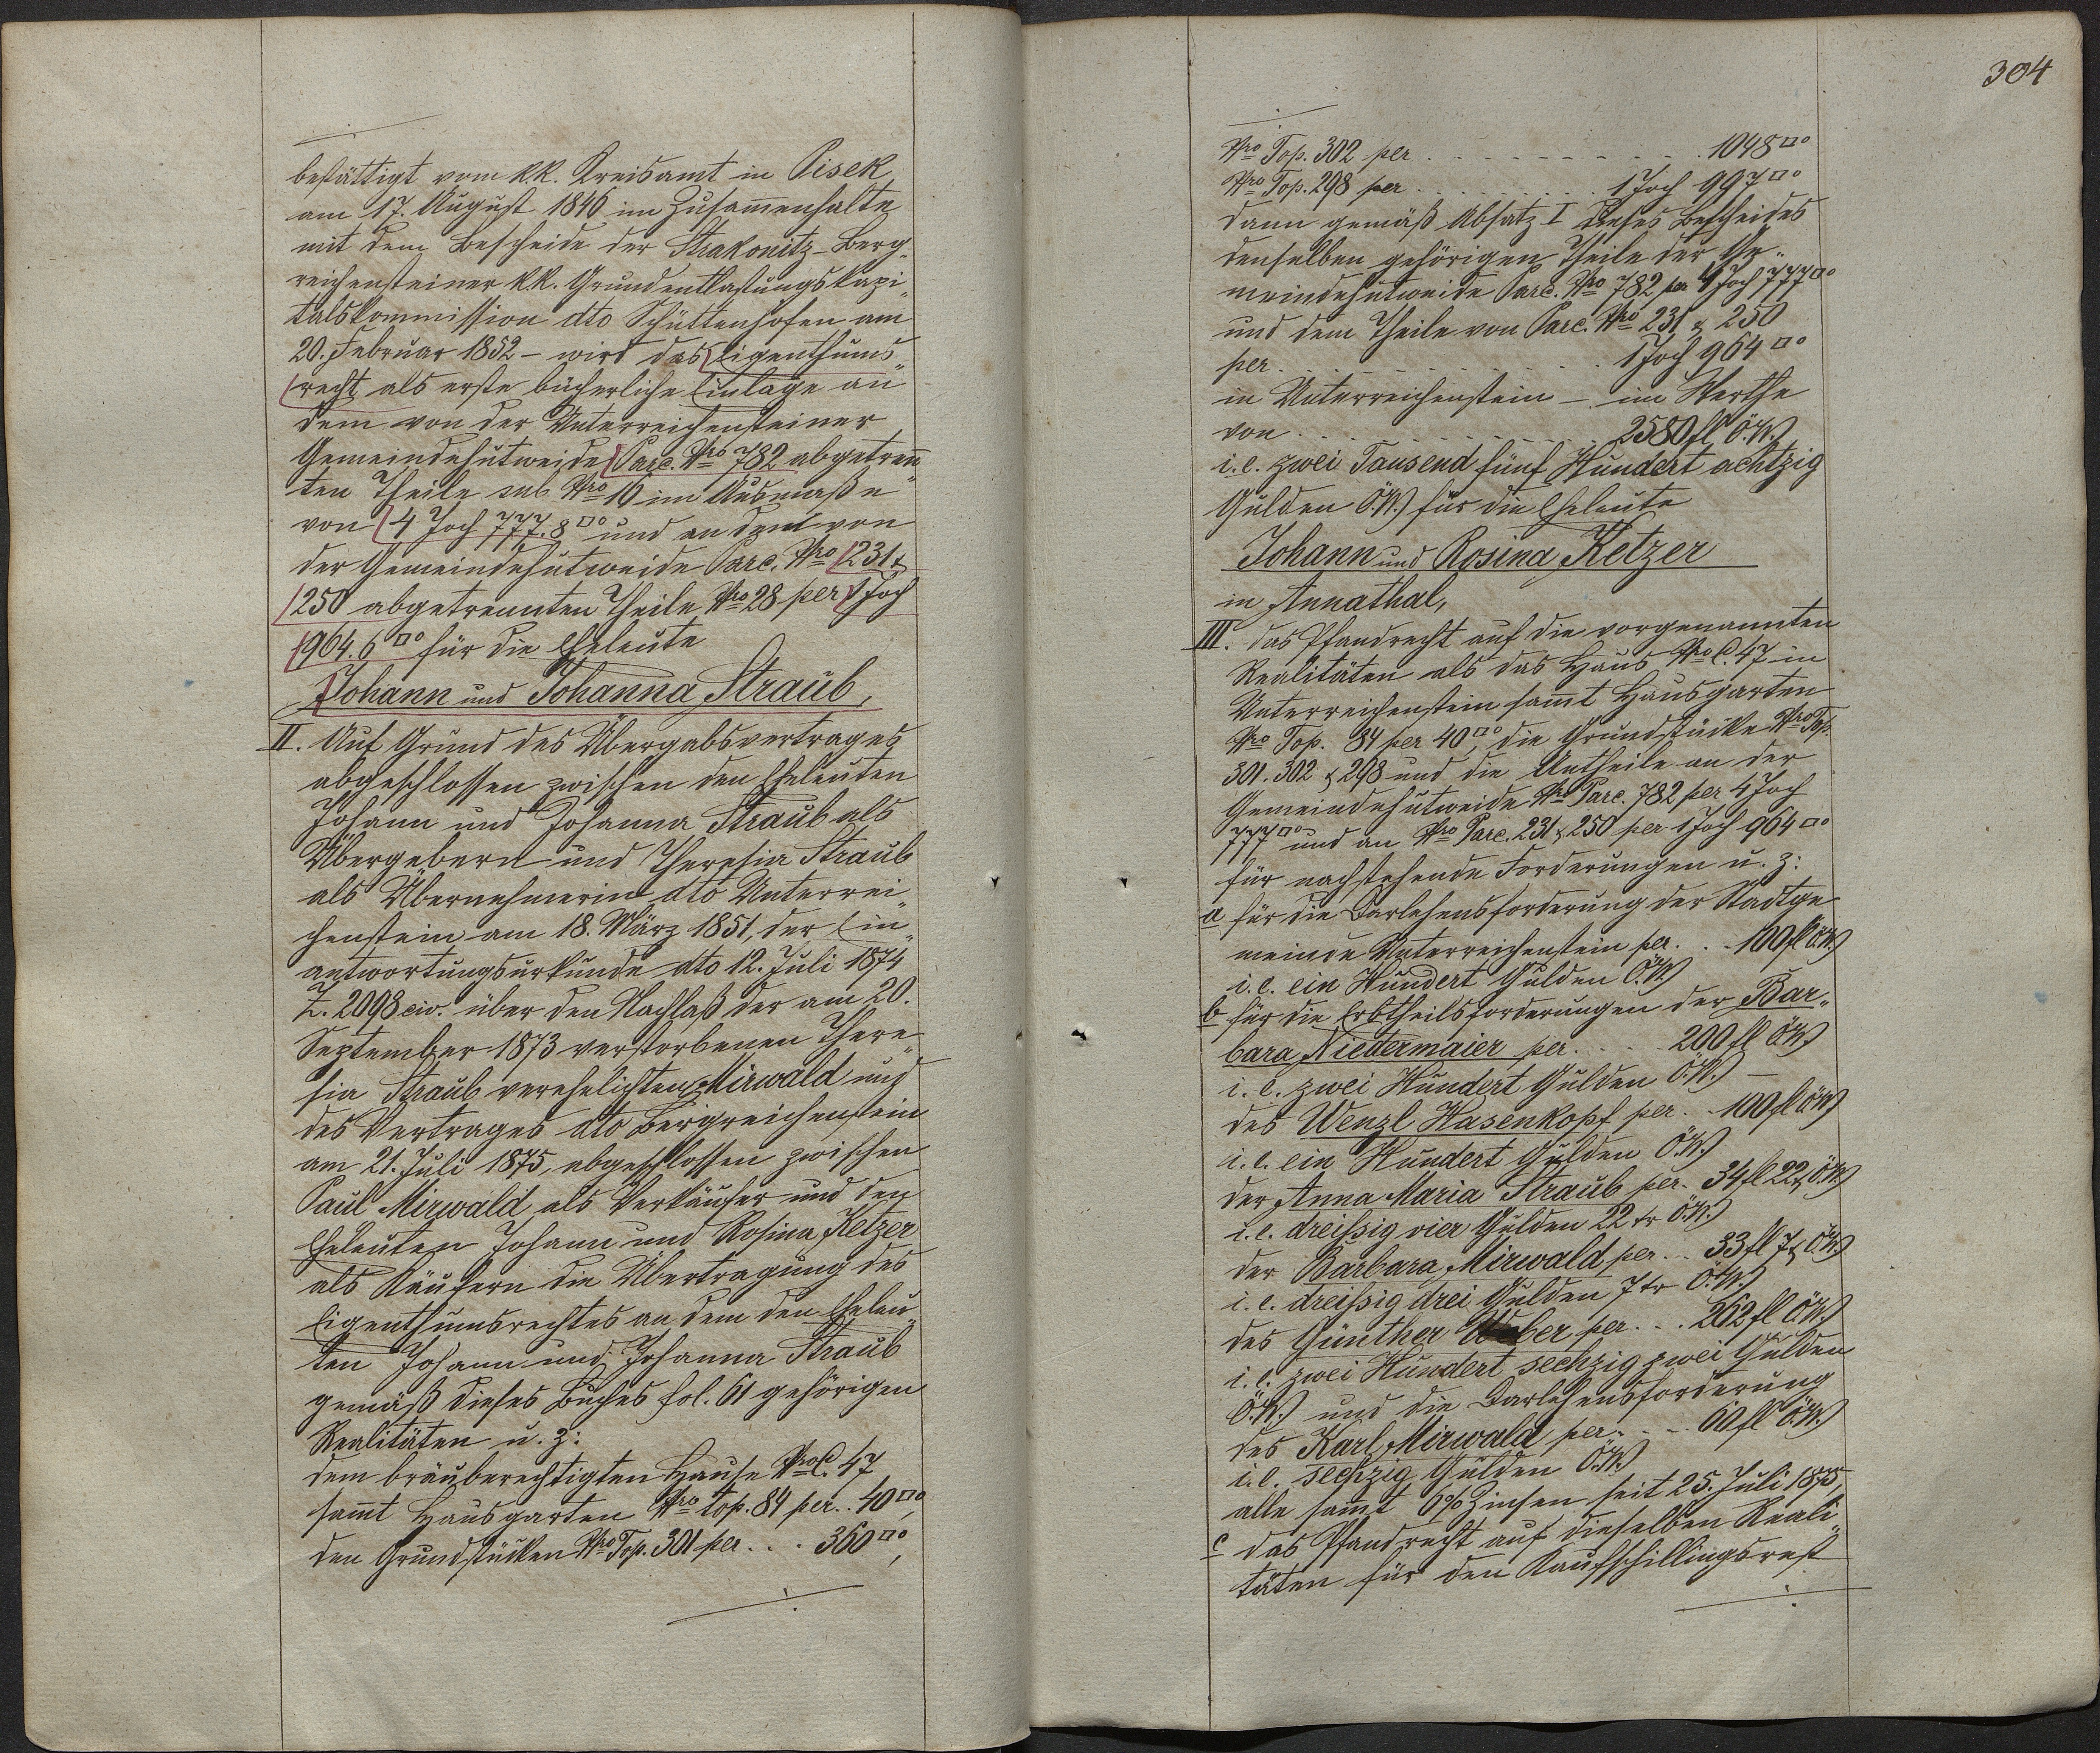 bestättigt vom k.k. Kreisamt in Pisek
am 17. August 1846 im Zusam̄enhalte
mit dem Bescheide der Strakonitz-Berg„
reichensteiner k.k. Grundentlastungskapi„
talskommission dto Schüttenhofen am
20. Februar 1852 – wird das Eigenthums„
recht als erste bücherliche Einlage an
dem von der Unterreichensteiner
Gemeindehutweide Parc. Nro 782 abgetrenn„
ten Theile sub Nro 16 im Ausmaße
von 4 Joch 777.8□° und an dem von
der Gemeindehutweide Parc. Nro 231 &
250 abgetrennten Theile Nro 28 per 1 Joch
964.6□° für die Eheleute
Johann und Johanna Straub,
II. Auf Grund des Übergabsvertrages
abgeschlossen zwischen den Eheleuten
Johann und Johanna Straub als
Übergebern und Theresia Straub
als Übernehmerin dto Unterrei„
chenstein am 18. März 1851, der Ein„
antwortungsurkunde dto 12. Juli 1874
Z. 2098 civ. über den Nachlaß der am 20.
September 1873 verstorbenen There„
sia Straub verehelichten Mirwald und
des Vertrages dto Bergreichenstein
am 21. Juli 1875, abgeschlossen zwischen
Paul Mirwald als Verkäufer und den
Eheleuten Johann und Rosina Ketzer
als Käufern die Übertragung des
Eigenthumsrechtes an dem den Eheleu„
ten Johann und Johanna Straub
gemäß dieses Buches fol. 61 gehörigen
Realitäten u. z:
dem bräuberechtigten Hause NroC. 47
sam̄t Hausgarten Nro top. 84 per . . 40□°,
den Grundstücken Nro Top. 301 per . . . 360□°,
304
Nro Top. 302 per . . . . . . . . . . 1048□°
Nro Top. 298 per . . . . . . . . 1 Joch 997□°
dann gemäß Absatz I dieses Bescheides
denselben gehörigen Theile der Ge„
meindehutweide Parc. Nro 782 per 4 Joch 777□°
und dem Theile von Parc. Nro 231 & 250
per . . . . . . . . . . . . . 1 Joch 964□°
in Unterreichenstein – im Werthe
von . . . . . . . . . . . . . 2580 fl Ö.W.)
i. e. zwei Tausend fünf Hundert achtzig
Gulden Ö.W.) für die Eheleute
Johann und Rosina Ketzer
in Annathal,
III. das Pfandrecht auf die vorgenannten
Realitäten als das Haus Nro C. 47 in
Unterreichenstein sam̄t Hausgarten
Nro Top. 84 per 40□°, die Grundstücke Nro Top.
301. 302 & 298 und die Antheile an der
Gemeindehutweide Nro Parc. 782 per 4 Joch
777□° und an Nro Parc. 231 & 250 per 1 Joch 964□°
für nachstehende Forderungen u. z:
a für die Darlehensforderung der Stadtge
meinde Unterreichenstein per . . 100 fl ö.W)
i. e. ein Hundert Gulden Ö.W)
b für die Erbtheilsforderungen der Bar„
bara Niedermaier per . . . . 200 fl ÖW)
i. e. zwei Hundert Gulden Ö.W.) –
des Wenzl Hasenkopf per . . 100 fl öW)
i. e. ein Hundert Gulden Ö.W.)
der Anna Maria Straub per . 34 fl 22 x Ö.W.)
i. e. dreißig vier Gulden 22 kr Ö.W.)
der Barbara Mirwald per . . 33 fl 7 x Ö.W.)
i. e. dreißig drei Gulden 7 kr Ö.W.)
des Günther Weber per . . . 262 fl Ö.W.)
i. e. zwei Hundert sechzig zwei Gulden
Ö.W.) und die Darlehensforderung
des Karl Mirwald per . . . . 60 fl Ö.W.)
i. e. sechzig Gulden Ö.W.)
alle sam̄t 6% Zinsen seit 25. Juli 1875,
c das Pfandrecht auf dieselben Reali„
täten für den Kaufschillingsrest